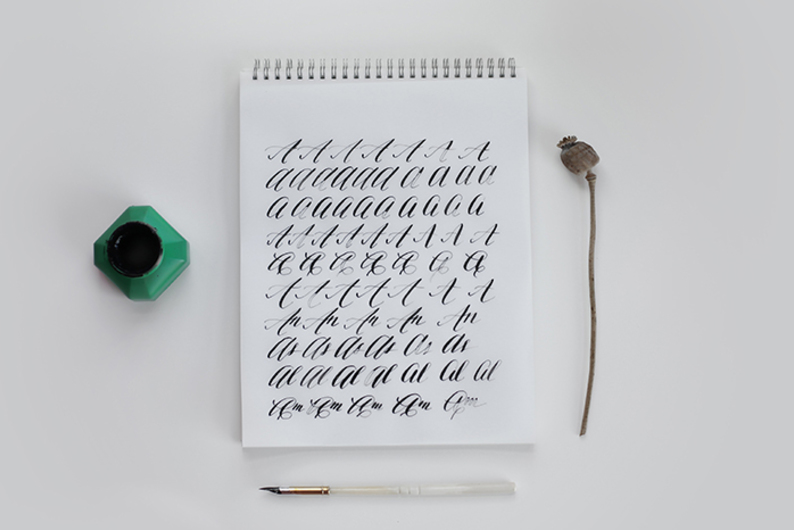 A A A A A A A
a a a a a a a a a a a
a a a a a a a a a a
A A A A A A A A A
a a a a a a a
A A A A A A A
An An An An An
as as as as as as
al al al al al al al
am am am am am